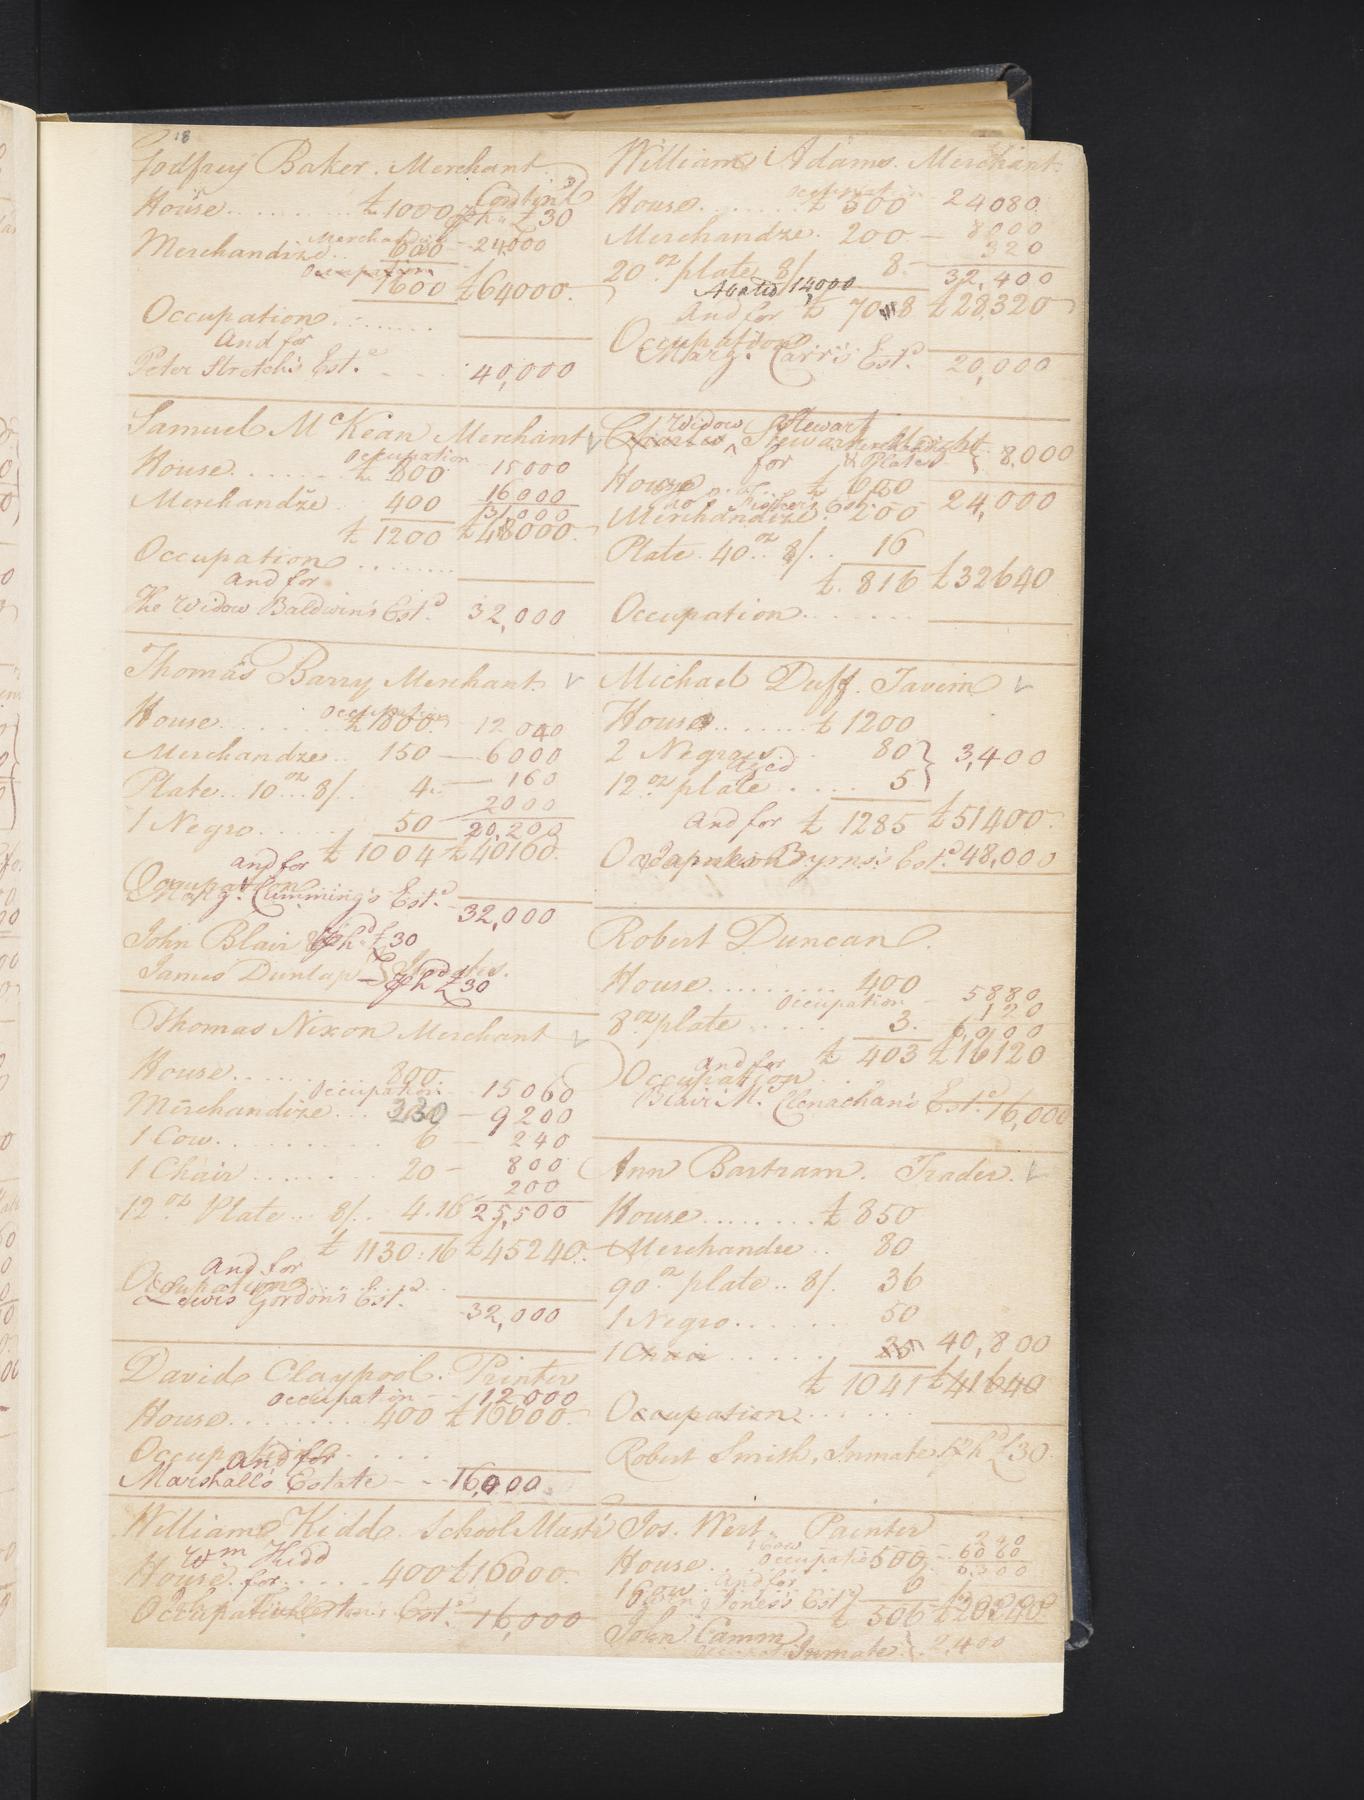 18
Godfrey Baker. Merchant.
House.......... £1000
£30
Merchandize 600 - 24,000
Occupation
1600 £64000.
Occupation........
And for
Peter Stretch's Est.e - - - 40,000
Samuel McKean Merchant
Occupation
House...... £ 800 15000
Merchandze. 400 16000
31,000
£ 1200 £48000.
Occupation........
and for
The Widow Baldwin's Est.e 32,000
Thomas Barry Merchant.
Occupation
House...... £800. 12040
Merchandze.. 150 — 6000
Plate.. 10.oz.. 8/.. 4.. — 160
2000
1 Negro...... 50 20,200
£ 1004 £40160.
and for
Occupation
Marg.t Cumming's Est.e 32,000
John Blair £30
James Dunlap Inmates.
£30
Thomas Nixon Merchant
House...... 800
Occupation. 15060
Merchandize... — 9200
1 Cow.......... 6 — 240
1 Chair........ 20 - 800
200
12 oz Plate... 8/.. 4.16 25,500
£ 1130:16 £45240.
and for
Occupation
Lewis Gordon's Est.e
32,000
David Claypool. Painter
Occupation - - 12,000
House......... 400 £16000.
Occupation....
And for
Marshall's Estate - - 16,000
William Kidd. School Mast.r
Wm Kidd
House. for..... 400 £16000.
Occupation
Est.e 16,000
William Adams. Merchant.
Occupation
House....... £ 500 - 24080
Merchandze. 200 — 8000
320
20 oz plate 8/ 8. 32,400
14,000
And for £ 708 £28,320
Occupation
Marg.t Carr's Est.e 20,000
Widow Stewart
Charles Stewart
for & Plate } 8,000
House £ 600
24,000
Merchandize. 200
Plate. 40.oz. 8/.. 16
£. 816 £32640
Occupation........
Michael Duff. Tavern
House........ £1200
2 Negroes.. 80 } 3,400
aged
12.oz plate..... 5
And for £ 1285 £51400.
Occupation
Byrn's Est.e 48,000
Robert Duncan.
House......... 400
Occupation - 5880
120
8 oz plate...... 3. 6,000
and for £ 403 £16120
Occupation
Blair McClenachan's Est.e 16,000
Ann Bartram. Trader.
House........ £850
Merchandze.. 80
90.oz plate.. 8/. 36
1 Negro....... 50
1 Chair....... 40,800
£ 1041 £41640
Occupation......
Robert Smith, Inmate £30.
Jos. Wert. Painter
240
1 Cow
Occupation 6060
House... 500. 6,300
1 Cow. and for 6
Jones's Est.e £ 506 £20240
John Camm
Occupation Inmate } 2,400